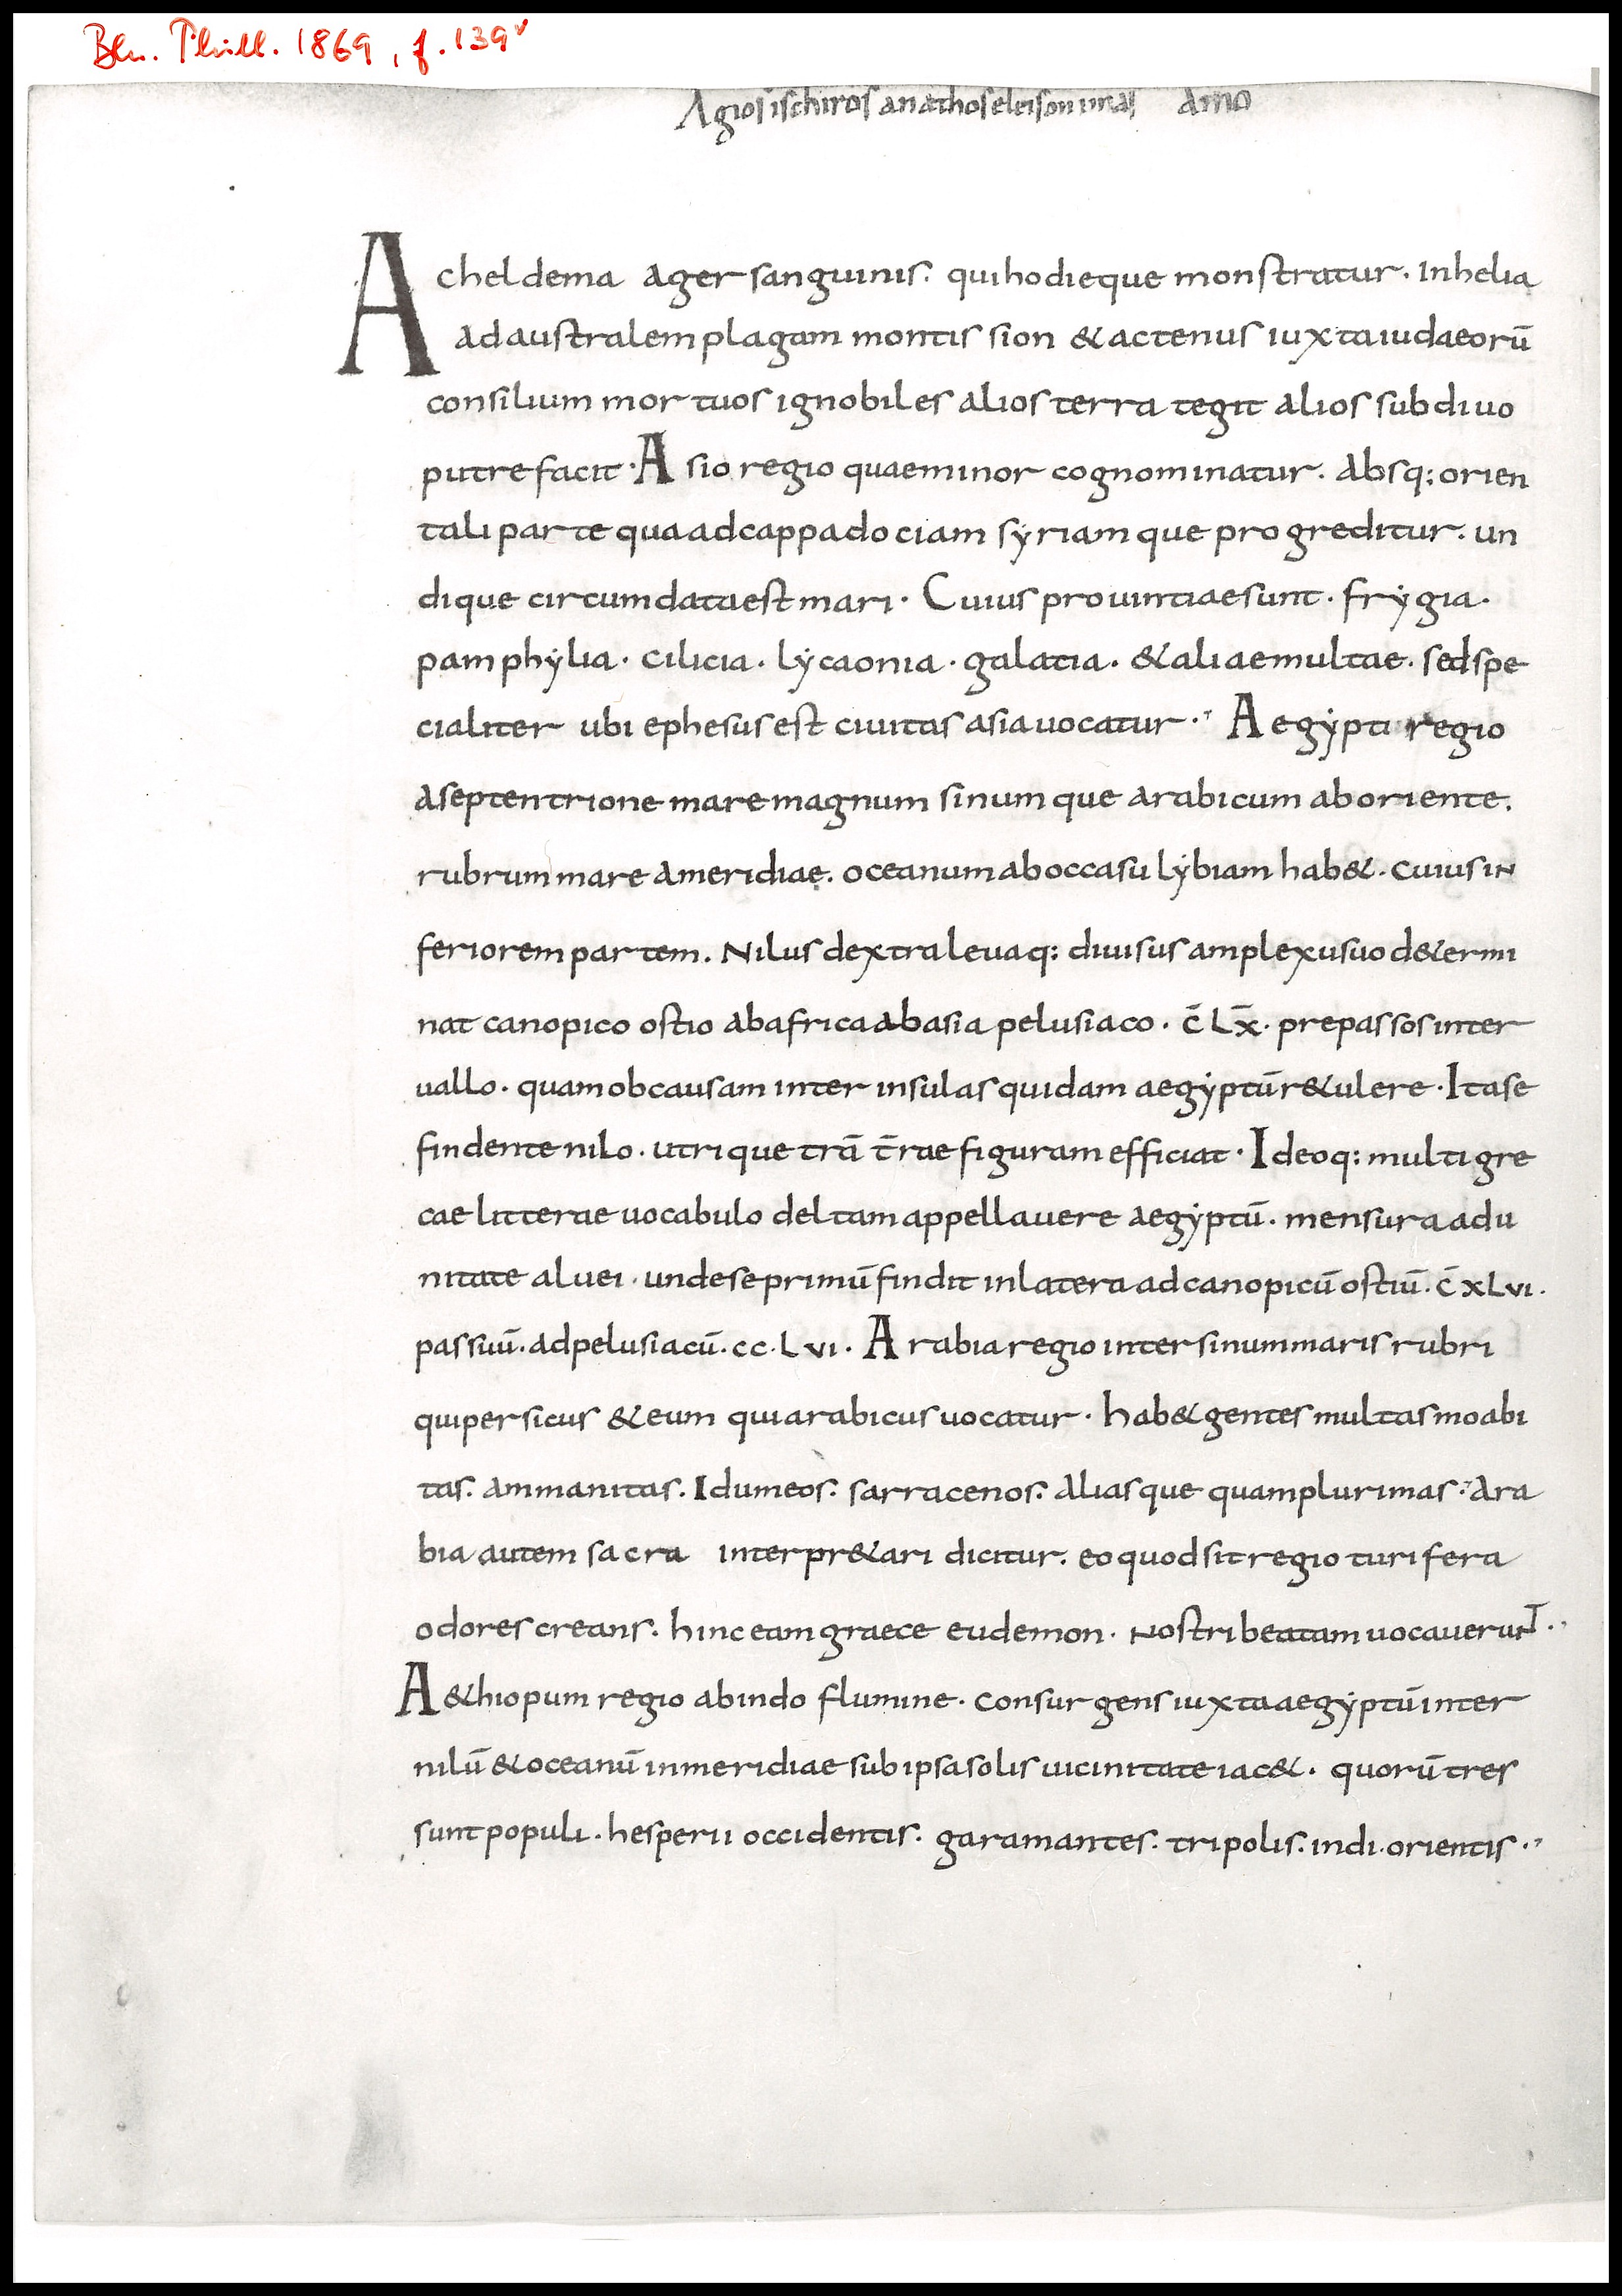 Bln. Phill. 1869, f. 139v
Agios ischiros anathos eleison imas amo
Acheldema ager sanguinis. qui hodieque monstratur. in helia
ad australem plagam montis sion & actenus iuxta iudaeorū
consilium mortuos ignobiles alios terra tegit alios sub diuo
putrefacit. Asio regio quae minor cognominatur. absq; orien
tali parte qua ad cappadociam sẏriamque progreditur. un
dique circumdata est mari. Cuius prouintiae sunt. frẏgia.
pamphẏlia. cilicia. lẏcaonia. galatia. & aliae multae. sed spe
cialiter ubi ephesus est ciuitas asia uocatur. Aegẏpti regio
a septentrione mare magnum sinumque arabicum ab oriente.
rubrum mare a meridiae. oceanum ab occasu lẏbiam hab&. cuius in
feriorem partem. Nilus dextra leuaq; diuisus amplexu suo d&ermi
nat canopico ostio ab africa ab asia pelusiaco. c̄ Lx̄. pre passos inter
uallo. quam ob causam inter insulas quidam aegẏptū r&ulere. Ita se
findente nilo. utrique trā t̄rae figuram efficiat. Ideoq; multi gre
cae litterae uocabulo deltam appellauere aegẏptū. mensura ad u
nitate aluei. unde se primū findit in latera ad canopicū ostiū. c̄ xLvi.
passuū. ad pelusiacū. cc. Lvi. Arabia regio inter sinum maris rubri
qui persicus & eum qui arabicus uocatur. hab& gentes multas moabi
tas. ammanitas. Idumeos. sarracenos. aliasque quamplurimas. Ara
bia autem sacra interpr&ari dicitur. eo quod sit regio turifera
odores creans. hinc eam graece eudemon. nostri beatam uocauerunt.
A&hiopum regio ab indo flumine. consurgens iuxta aegẏptū inter
nilū & oceanū in meridiae sub ipsa solis uicinitate iac&. quorū tres
sunt populi. hesperii occidentis. garamantes. tripolis. indi. orientis.